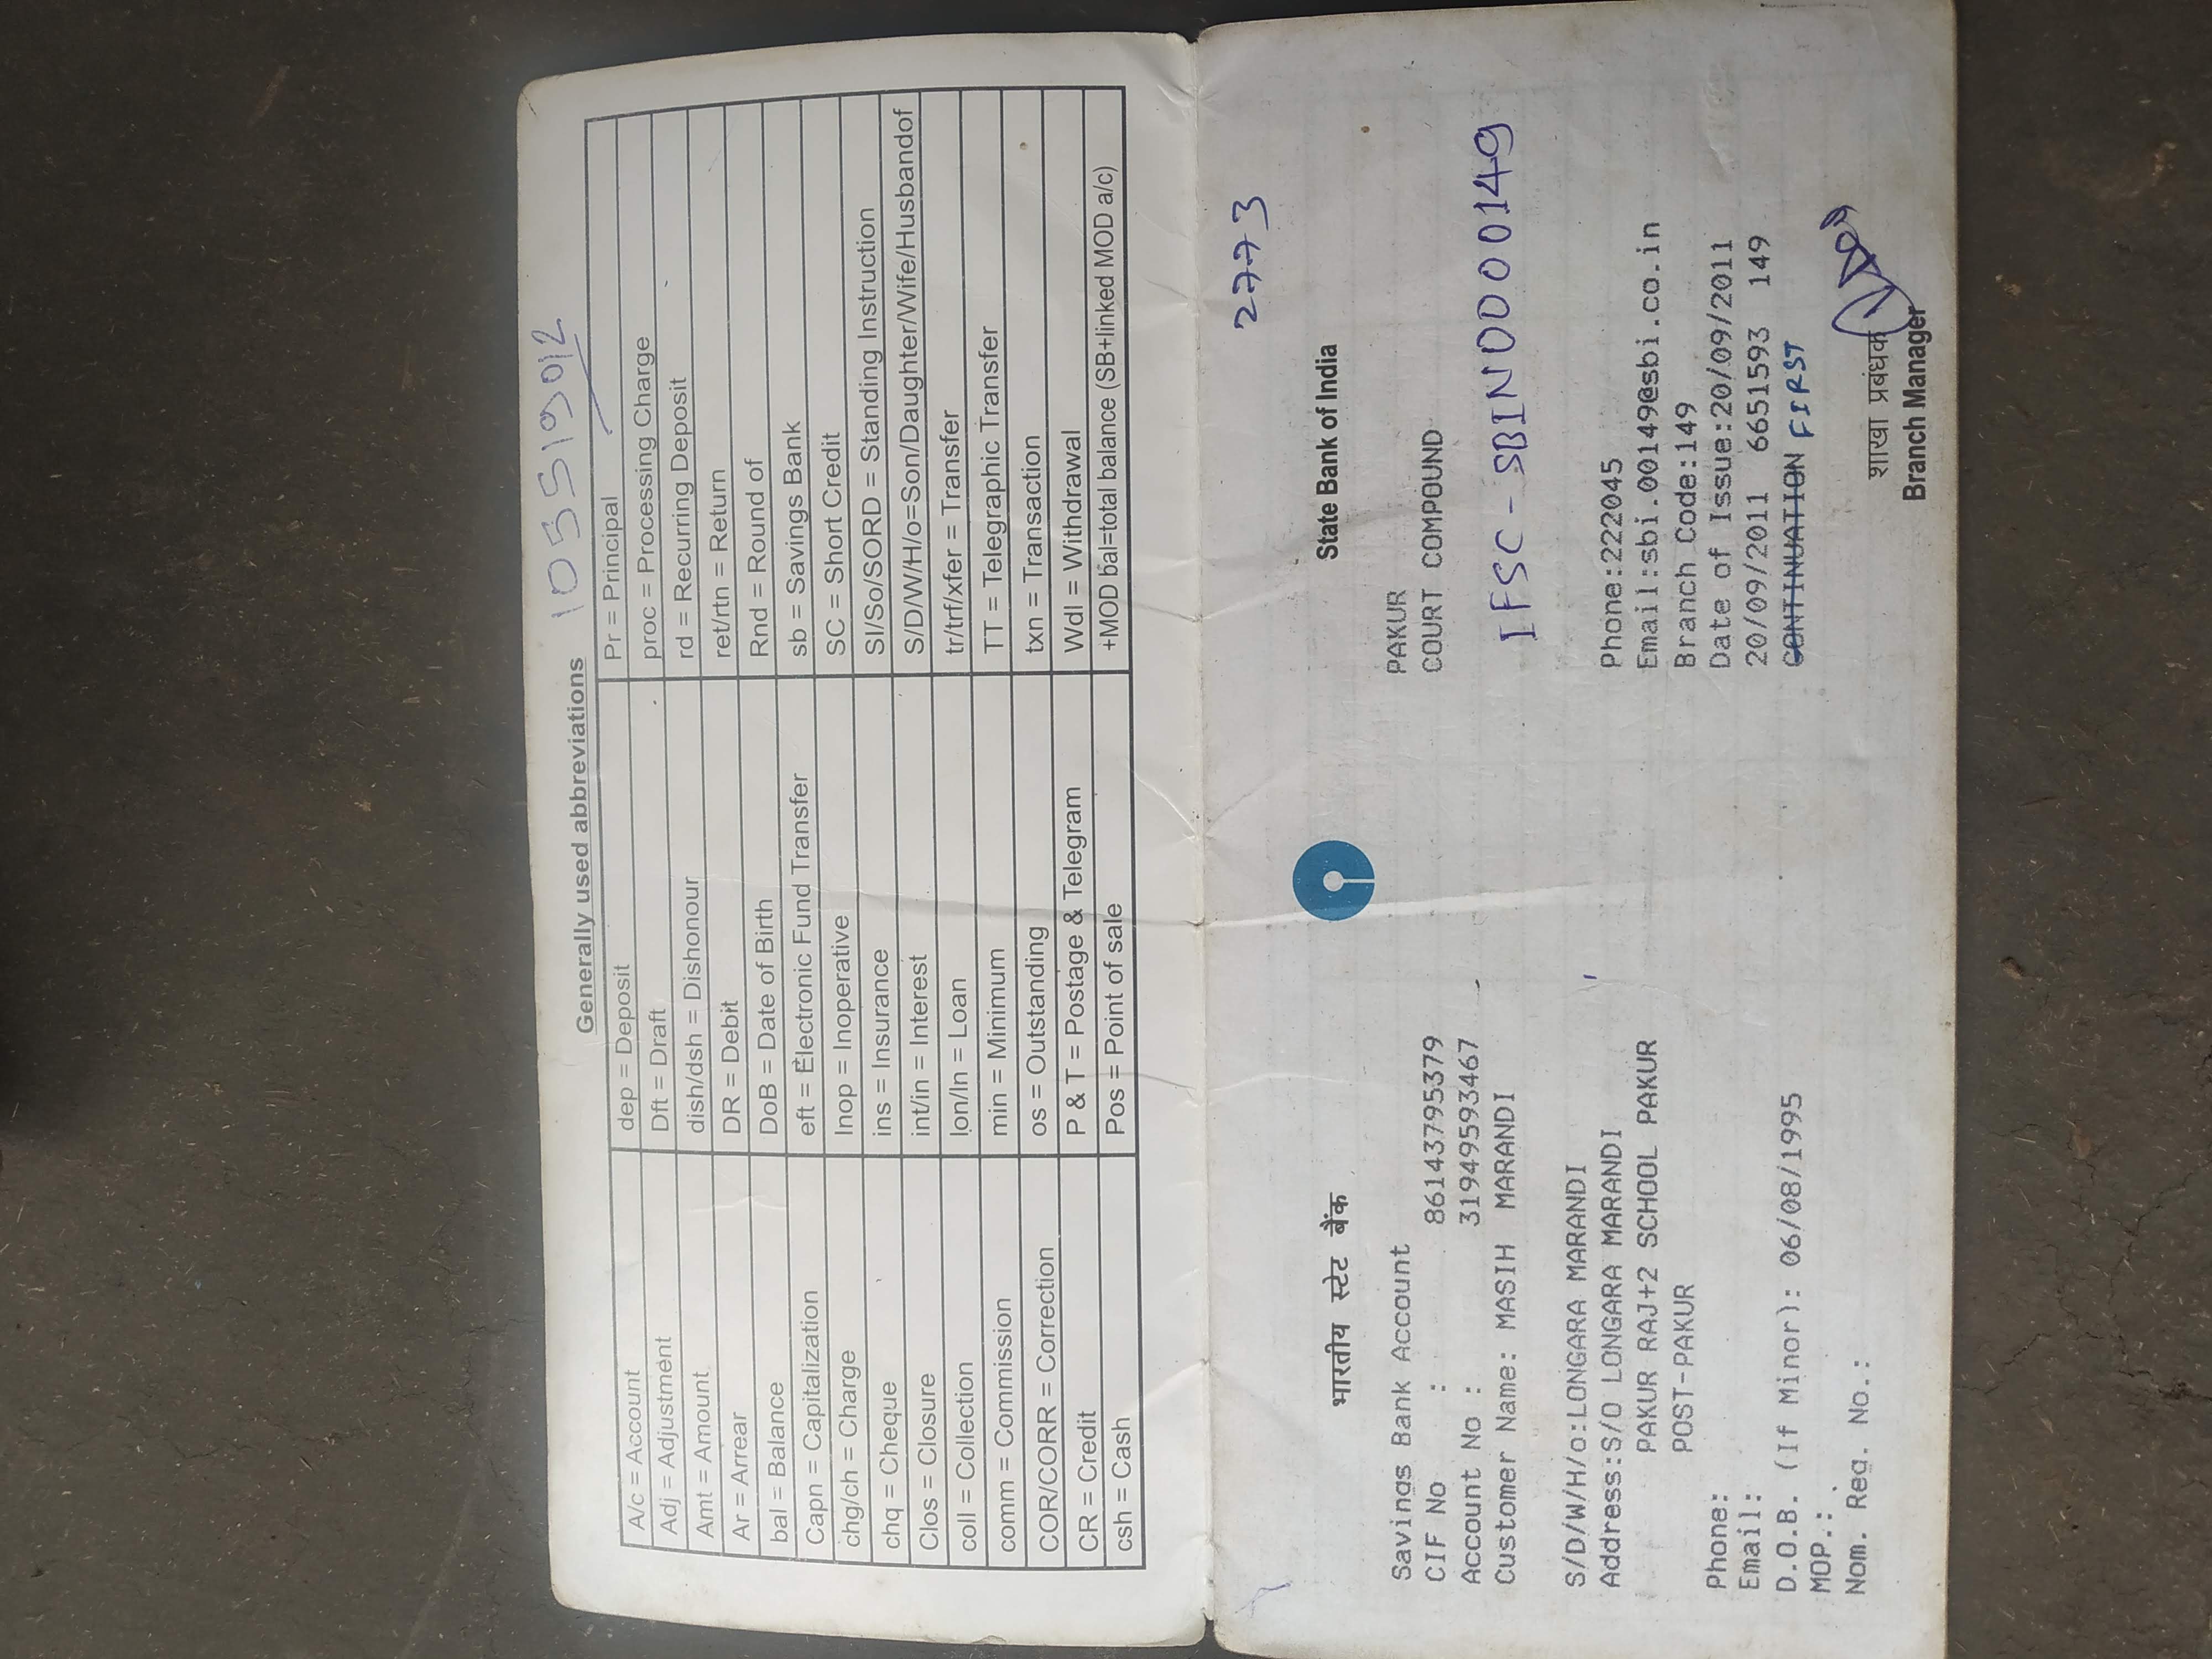 103519012
Generally used abbreviations
A/c = Account dep = Deposit Pr = Principal
Adj = Adjustment Dft = Draft proc = Processing Charge
Amt = Amount dish/dsh = Dishonour rd = Recurring Deposit
Ar = Arrear DR = Debit ret/rtn = Return
bal = Balance DoB = Date of Birth Rnd = Round of
Capn = Capitalization eft = Electronic Fund Transfer sb = Savings Bank
chg/ch = Charge Inop = Inoperative SC = Short Credit
chq = Cheque ins = Insurance SI/So/SORD = Standing Instruction
Clos = Closure int/in = Interest S/D/W/H/o=Son/Daughter/Wife/Husbandof
coll = Collection lon/ln = Loan tr/trf/xfer = Transfer
comm = Commission min = Minimum TT = Telegraphic Transfer
COR/CORR = Correction os = Outstanding txn = Transaction
CR = Credit P & T = Postage & Telegram Wdl = Withdrawal
csh = Cash Pos = Point of sale +MOD bal=total balance (SB+linked MOD a/c)
2773
भारतीय स्टेट बैंक State Bank of India
Savings Bank Account PAKUR
CIF No : 86143795379 COURT COMPOUND
Account No : 31949593467
Customer Name: MASIH MARANDI IFSC - SBIN0000149
S/D/W/H/o:LONGARA MARANDI
Address:S/O LONGARA MARANDI Phone:222045
PAKUR RAJ+2 SCHOOL PAKUR Email:sbi.00149@sbi.co.in
POST-PAKUR Branch Code:149
Phone: Date of Issue:20/09/2011
Email: 20/09/2011 6651593 149
D.O.B. (If Minor): 06/08/1995 CONTINUATION FIRST
MOP.:
Nom. Reg. No.: शाखा प्रबंधक
Branch Manager